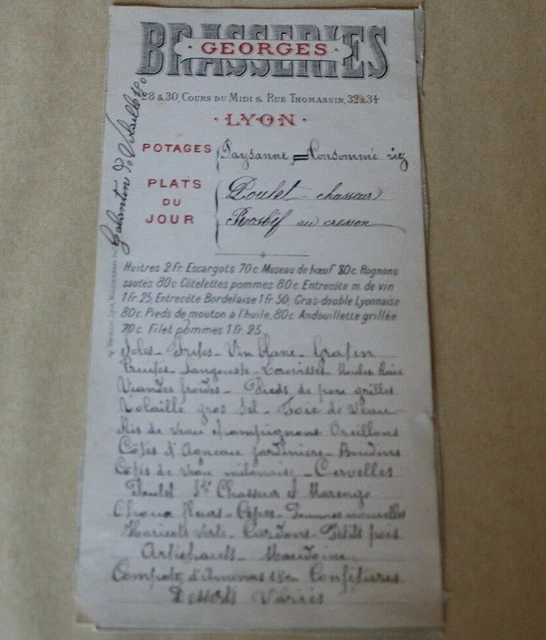 BRASSERIES
GEORGES
28 & 30, COURS DU MIDI & RUE THOMASSIN, 32 & 34
LYON
POTAGES
Paysanne = Consommé riz
PLATS
DU
JOUR
Poulet chasseur
Rosbif au cresson
Galantine de Volaille
Huitres 2 fr. Escargots 70 c. Museau de bœuf 80 c. Rognons
sautés 80 c. Côtelettes pommes 80 c. Entrecôte m. de vin
1 fr 25, Entrecôte Bordelaise 1 fr. 50, Gras-double Lyonnaise
80 c. Pieds de mouton à l'huile, 80 c. Andouillette grillée
70 c. Filet pommes 1 fr 25
Soles - Tripes - Vin blanc - Gratin
Truites - Langouste - Ecrevisses
Viandes froides - Pieds de porc grillés
Volaille gros Sel - Foie de Veau
Ris de veau champignons Oreillons
Côtes d'Agneau Jardinière - Boudins
Côtes de veau milanaise - Cervelles
Poulet Sté Chasseur et Marengo
Choux fleurs - Cèpes - Pommes nouvelles
Haricots verts - Cardons - Petits pois
Artichauts - Macédoine
Compote d'Ananas Confitures
Desserts Variés